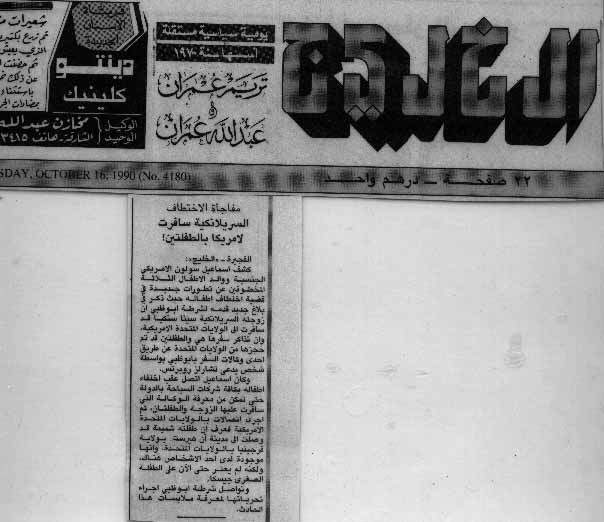 الخليج
يومية سياسية مستقلة
أسسها سنة ١٩٧٠
تريم عمران
و
عبدالله عمران
دينتو
كلينيك
الوكيل
الوحيد
مخازن عبدالله
الشارقة، هاتف
SDAY, OCTOBER 16, 1990 (No. 4180)
٣٢ صفحة ـ درهم واحد
مفاجأة الاختطاف
السريلانكية سافرت
لامريكا بالطفلتين!
الفجيرة ـ «الخليج»:
كشف اسماعيل سولون الامريكي
الجنسية ووالد الاطفال الثلاثة
المخطوفين عن تطورات جديدة في
قضية اختطاف اطفاله حيث ذكر في
بلاغ جديد قدمه لشرطة ابوظبي ان
زوجته السريلانكية سيتا قد
سافرت الى الولايات المتحدة الامريكية،
وان تذاكر سفرها هي والطفلتين قد تم
حجزها من الولايات المتحدة عن طريق
احدى وكالات السفر بابوظبي بواسطة
شخص يدعى تشارلز روبرتس.
وكان اسماعيل اتصل عقب اختفاء
اطفاله بكافة شركات السياحة بالدولة
حتى تمكن من معرفة الوكالة التي
سافرت عليها الزوجة والطفلتان، ثم
اجرى اتصالات بالولايات المتحدة
الامريكية فعرف ان طفلته شميمة قد
وصلت الى مدينة بولاية
فرجينيا بالولايات المتحدة، وانها
موجودة لدى احد الاشخاص هناك،
ولكنه لم يعثر حتى الآن على الطفلة
الصغرى جيسكا.
وتواصل شرطة ابوظبي اجراء
تحرياتها لمعرفة ملابسات هذا
الحادث.